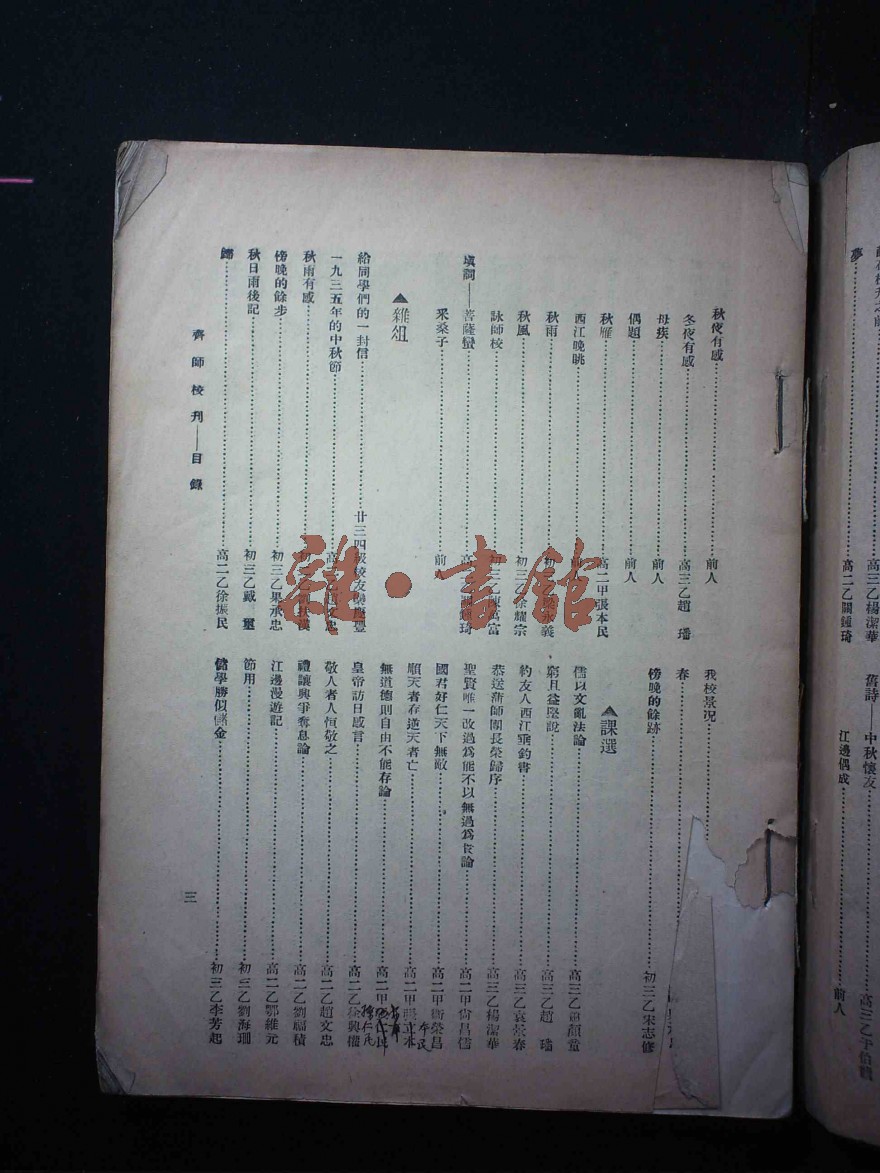 夢
高三乙楊潔華
高二乙關鍾琦
舊詩——中秋懷友
江邊偶成
前人
秋夜有感 前人
冬夜有感 高三乙趙璠
母疾 前人
偶題 前人
秋雁 高二甲張本民
西江晚眺
秋雨
秋風 初三乙徐耀宗
詠師校
填詞——菩薩蠻
采桑子 前人
▲雜俎
給同學們的一封信
一九三五年的中秋節
秋雨有感
傍晚的餘步 初三乙果承忠
秋日雨後記 初三乙戴璽
歸 高二乙徐振民
我校景況
春
傍晚的餘跡 初三乙宋志修
▲課選
儒以文亂法論 高三乙蕭顏童
窮且益堅說 高三乙趙璠
約友人西江垂釣書 高三乙袁景春
恭送蒲師團長榮歸序 高三乙楊潔華
聖賢唯一改過為能不以無過為長論 高二甲尚昌信
國君好仁天下無敵 高二甲衛榮昌
順天者存逆天者亡 高二甲 本民
無道德則自由不能存論 高二甲
皇帝訪日感言 高二乙徐興權
敬人者人恒敬之 高二乙趙文忠
禮讓興爭奪息論 高二乙劉福積
江邊漫遊記 高二乙鄂維元
節用 初三乙劉海珊
儲學勝似儲金 初三乙李芳起
齊師校刊——目錄
三
雜·書館